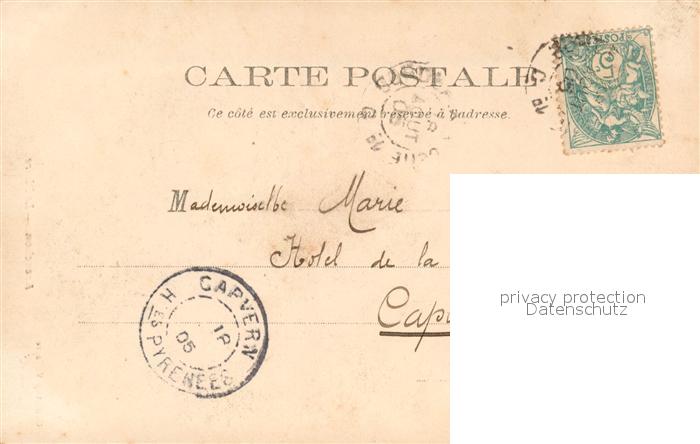 CARTE POSTALE
Ce côté est exclusivement réservé à l'adresse.
Mademoiselle Marie
Hotel de la
Capv
CAPVERN
Htes PYRENEES
05
AOUT
05
5
POSTES
privacy protection
Datenschutz